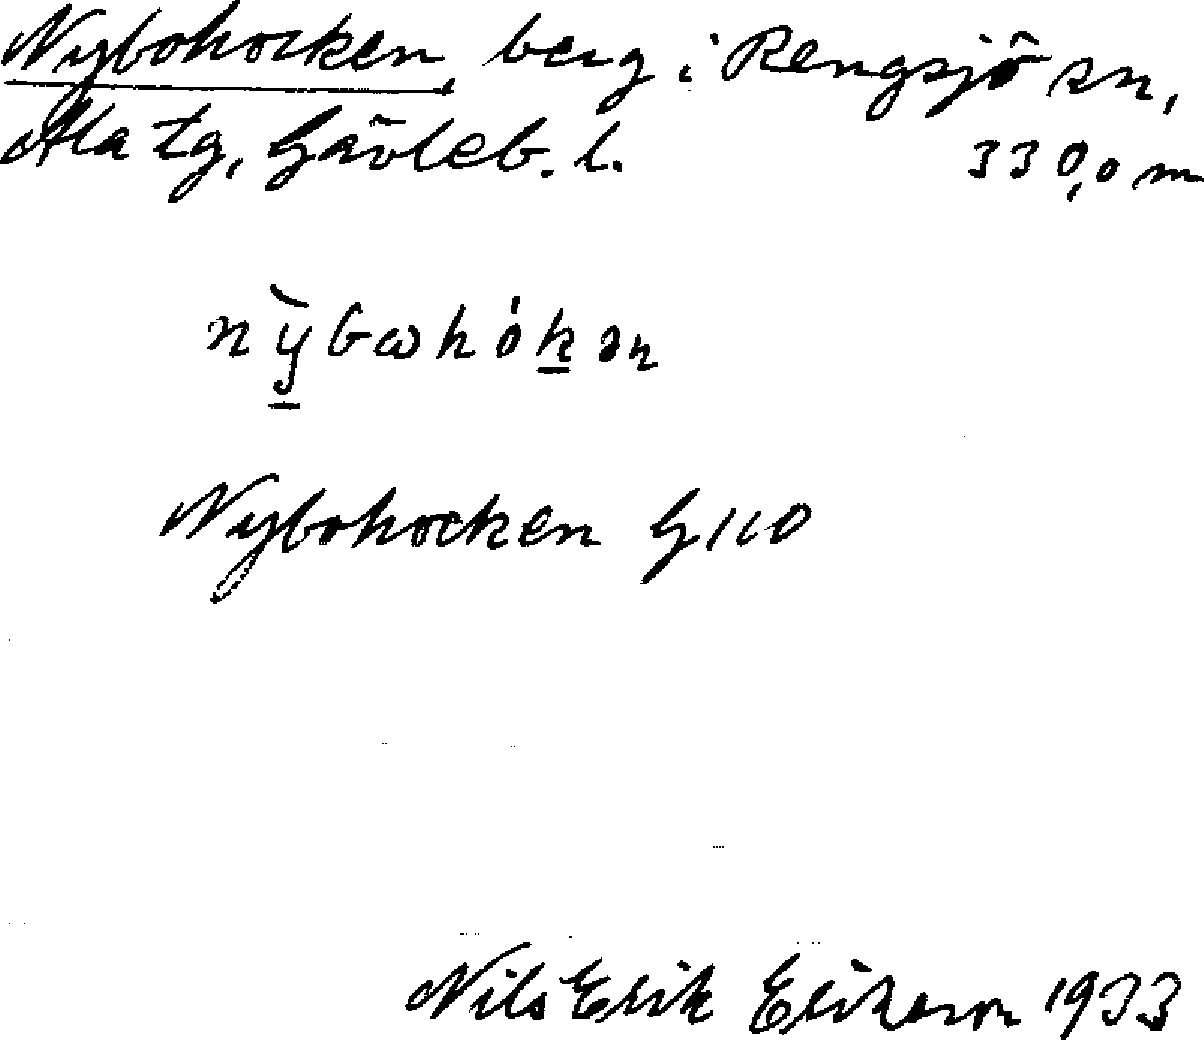 Nybohocken, berg i Rengsjö sn,
Ala tg, Gävleb. l. 330,0 m
nỳbωhókən
Nybohocken G 110
Nils Erik Erikson 1933